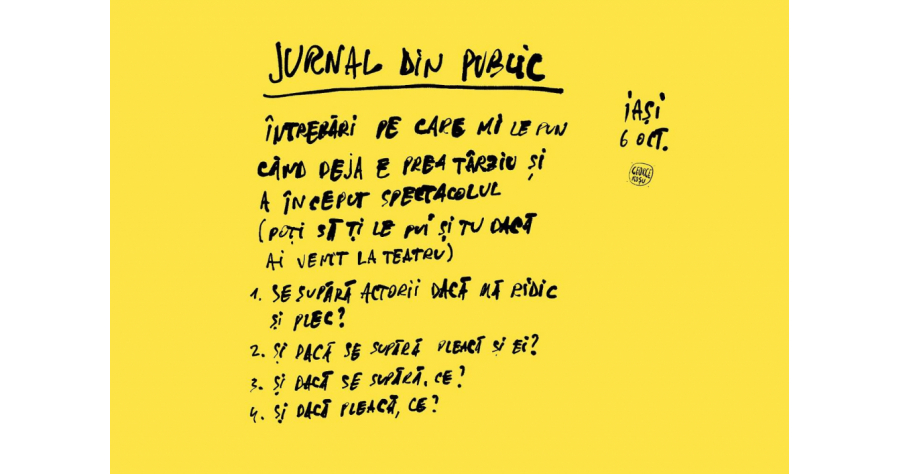 JURNAL DIN PUBLIC
IAȘI
6 OCT.
ÎNTREBĂRI PE CARE MI LE PUN
CÂND DEJA E PREA TÂRZIU ȘI
A ÎNCEPUT SPECTACOLUL
(POȚI SĂ ȚI LE PUI ȘI TU DACĂ
AI VENIT LA TEATRU)
1. SE SUPĂRĂ ACTORII DACĂ MĂ RIDIC
ȘI PLEC?
2. ȘI DACĂ SE SUPĂRĂ PLEACĂ ȘI EI?
3. ȘI DACĂ SE SUPĂRĂ, CE?
4. ȘI DACĂ PLEACĂ, CE?